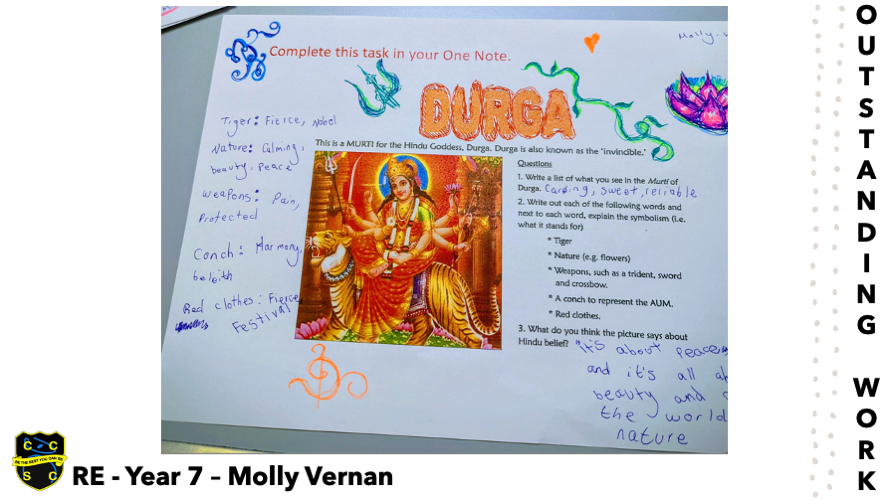 Molly.
Complete this task in your One Note.
DURGA
This is a MURTI for the Hindu Goddess, Durga. Durga is also known as the 'invincible.'
Tiger: Fierce, Nobel
Nature: Calming,
beauty, Peace
Weapons: Pain,
Protected
Conch: Harmony,
Red clothes: Fierce
Festival
Questions
1. Write a list of what you see in the Murti of
Durga. Carding, sweet, reliable
2. Write out each of the following words and
next to each word, explain the symbolism (i.e.
what it stands for)
* Tiger
* Nature (e.g. flowers)
* Weapons, such as a trident, sword
and crossbow.
* A conch to represent the AUM.
* Red clothes.
3. What do you think the picture says about
Hindu belief? It's about peace
and it's all
beauty and
the world
nature
C C
BE THE BEST YOU CAN BE
S C
RE - Year 7 – Molly Vernan
OUTSTANDING WORK